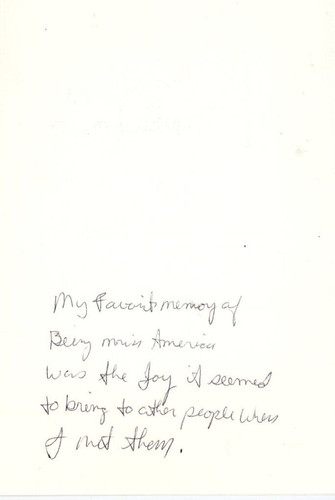 My Favorit memory of
Being miss America
was the Joy it seemed
to bring to other people when
I met them.